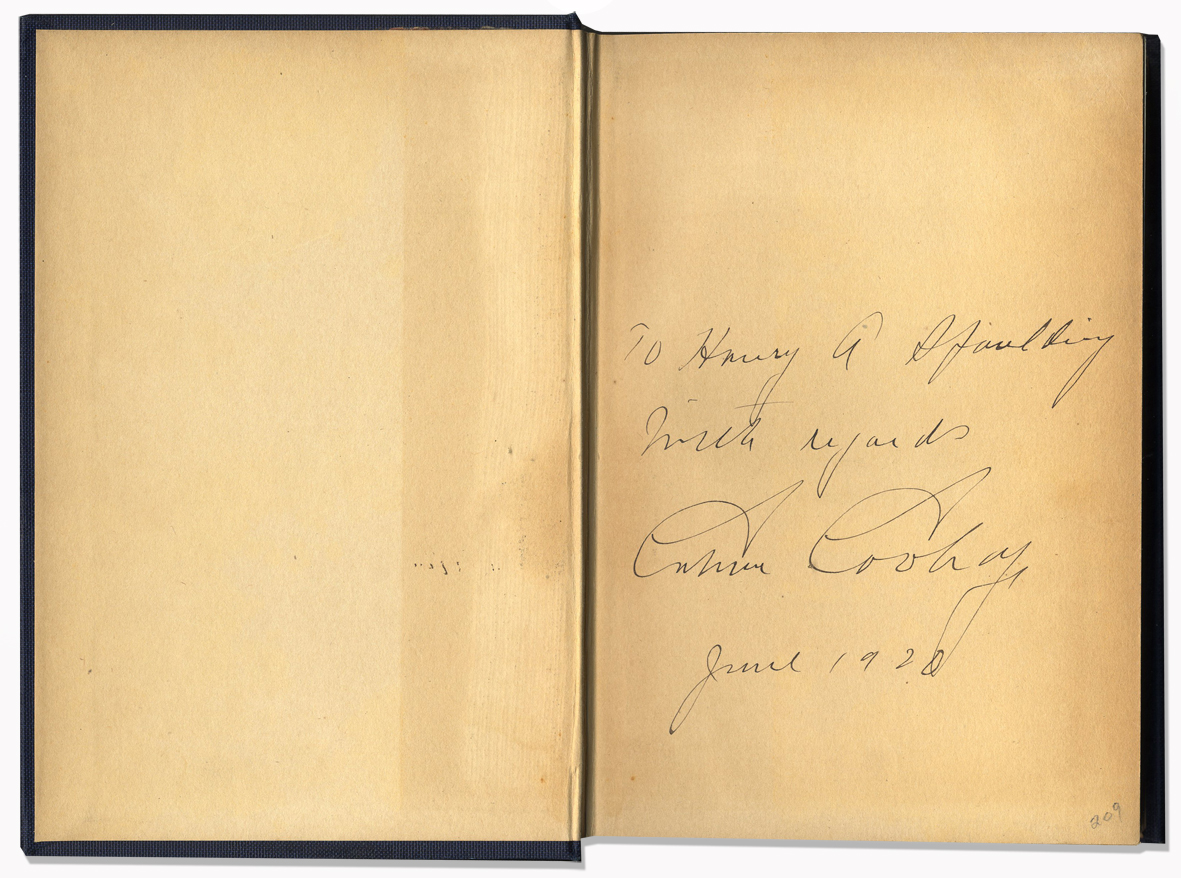 To Henry A Spaulding
With regards
Calvin Coolidge
June 1920
209